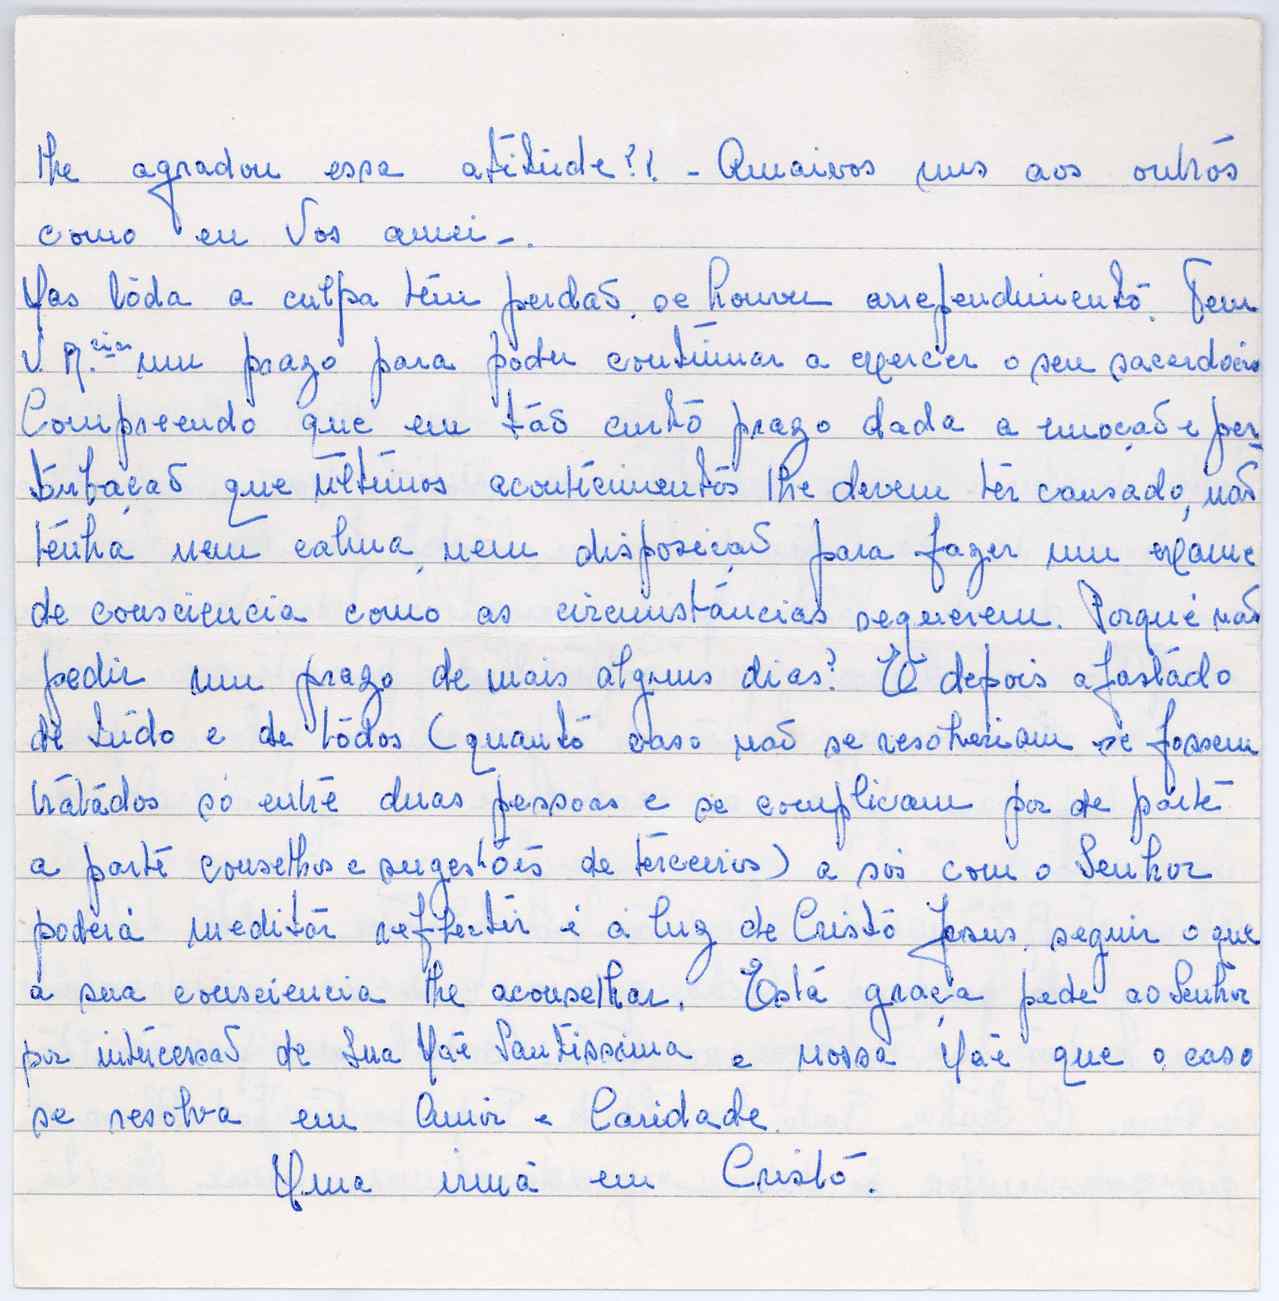 lhe agradou essa atitude?! - Amaivos uns aos outros
como eu Vos amei -.
Mas tôda a culpa têm perdão, se houver arrependimento. Tem
V. R.cia um prazo para poder continuar a exercer o seu sacerdócio
Compreendo que em tão curto prazo dada a emoção e per
turbação que últimos acontecimentos lhe devem ter causado, não
tenha nem calma, nem disposição para fazer um exame
de consciencia como as circunstâncias requerem. Porquê não
pedir um prazo de mais alguns dias? E depois afastado
de tudo e de todos (quanto caso não se resolveriam se fossem
tratados só entre duas pessoas e se complicam por de parte
a parte conselhos e sugestões de terceiros) a sós com o Senhor
poderá meditar reflectir e á luz de Cristo Jesus, seguir o que
a sua consciencia lhe aconselhar. Esta graça pede ao Senhor
por intercessão de Sua Mãe Santissima e nossa Mãe que o caso
se resolva em Amor e Caridade.
Uma irmã em Cristo.